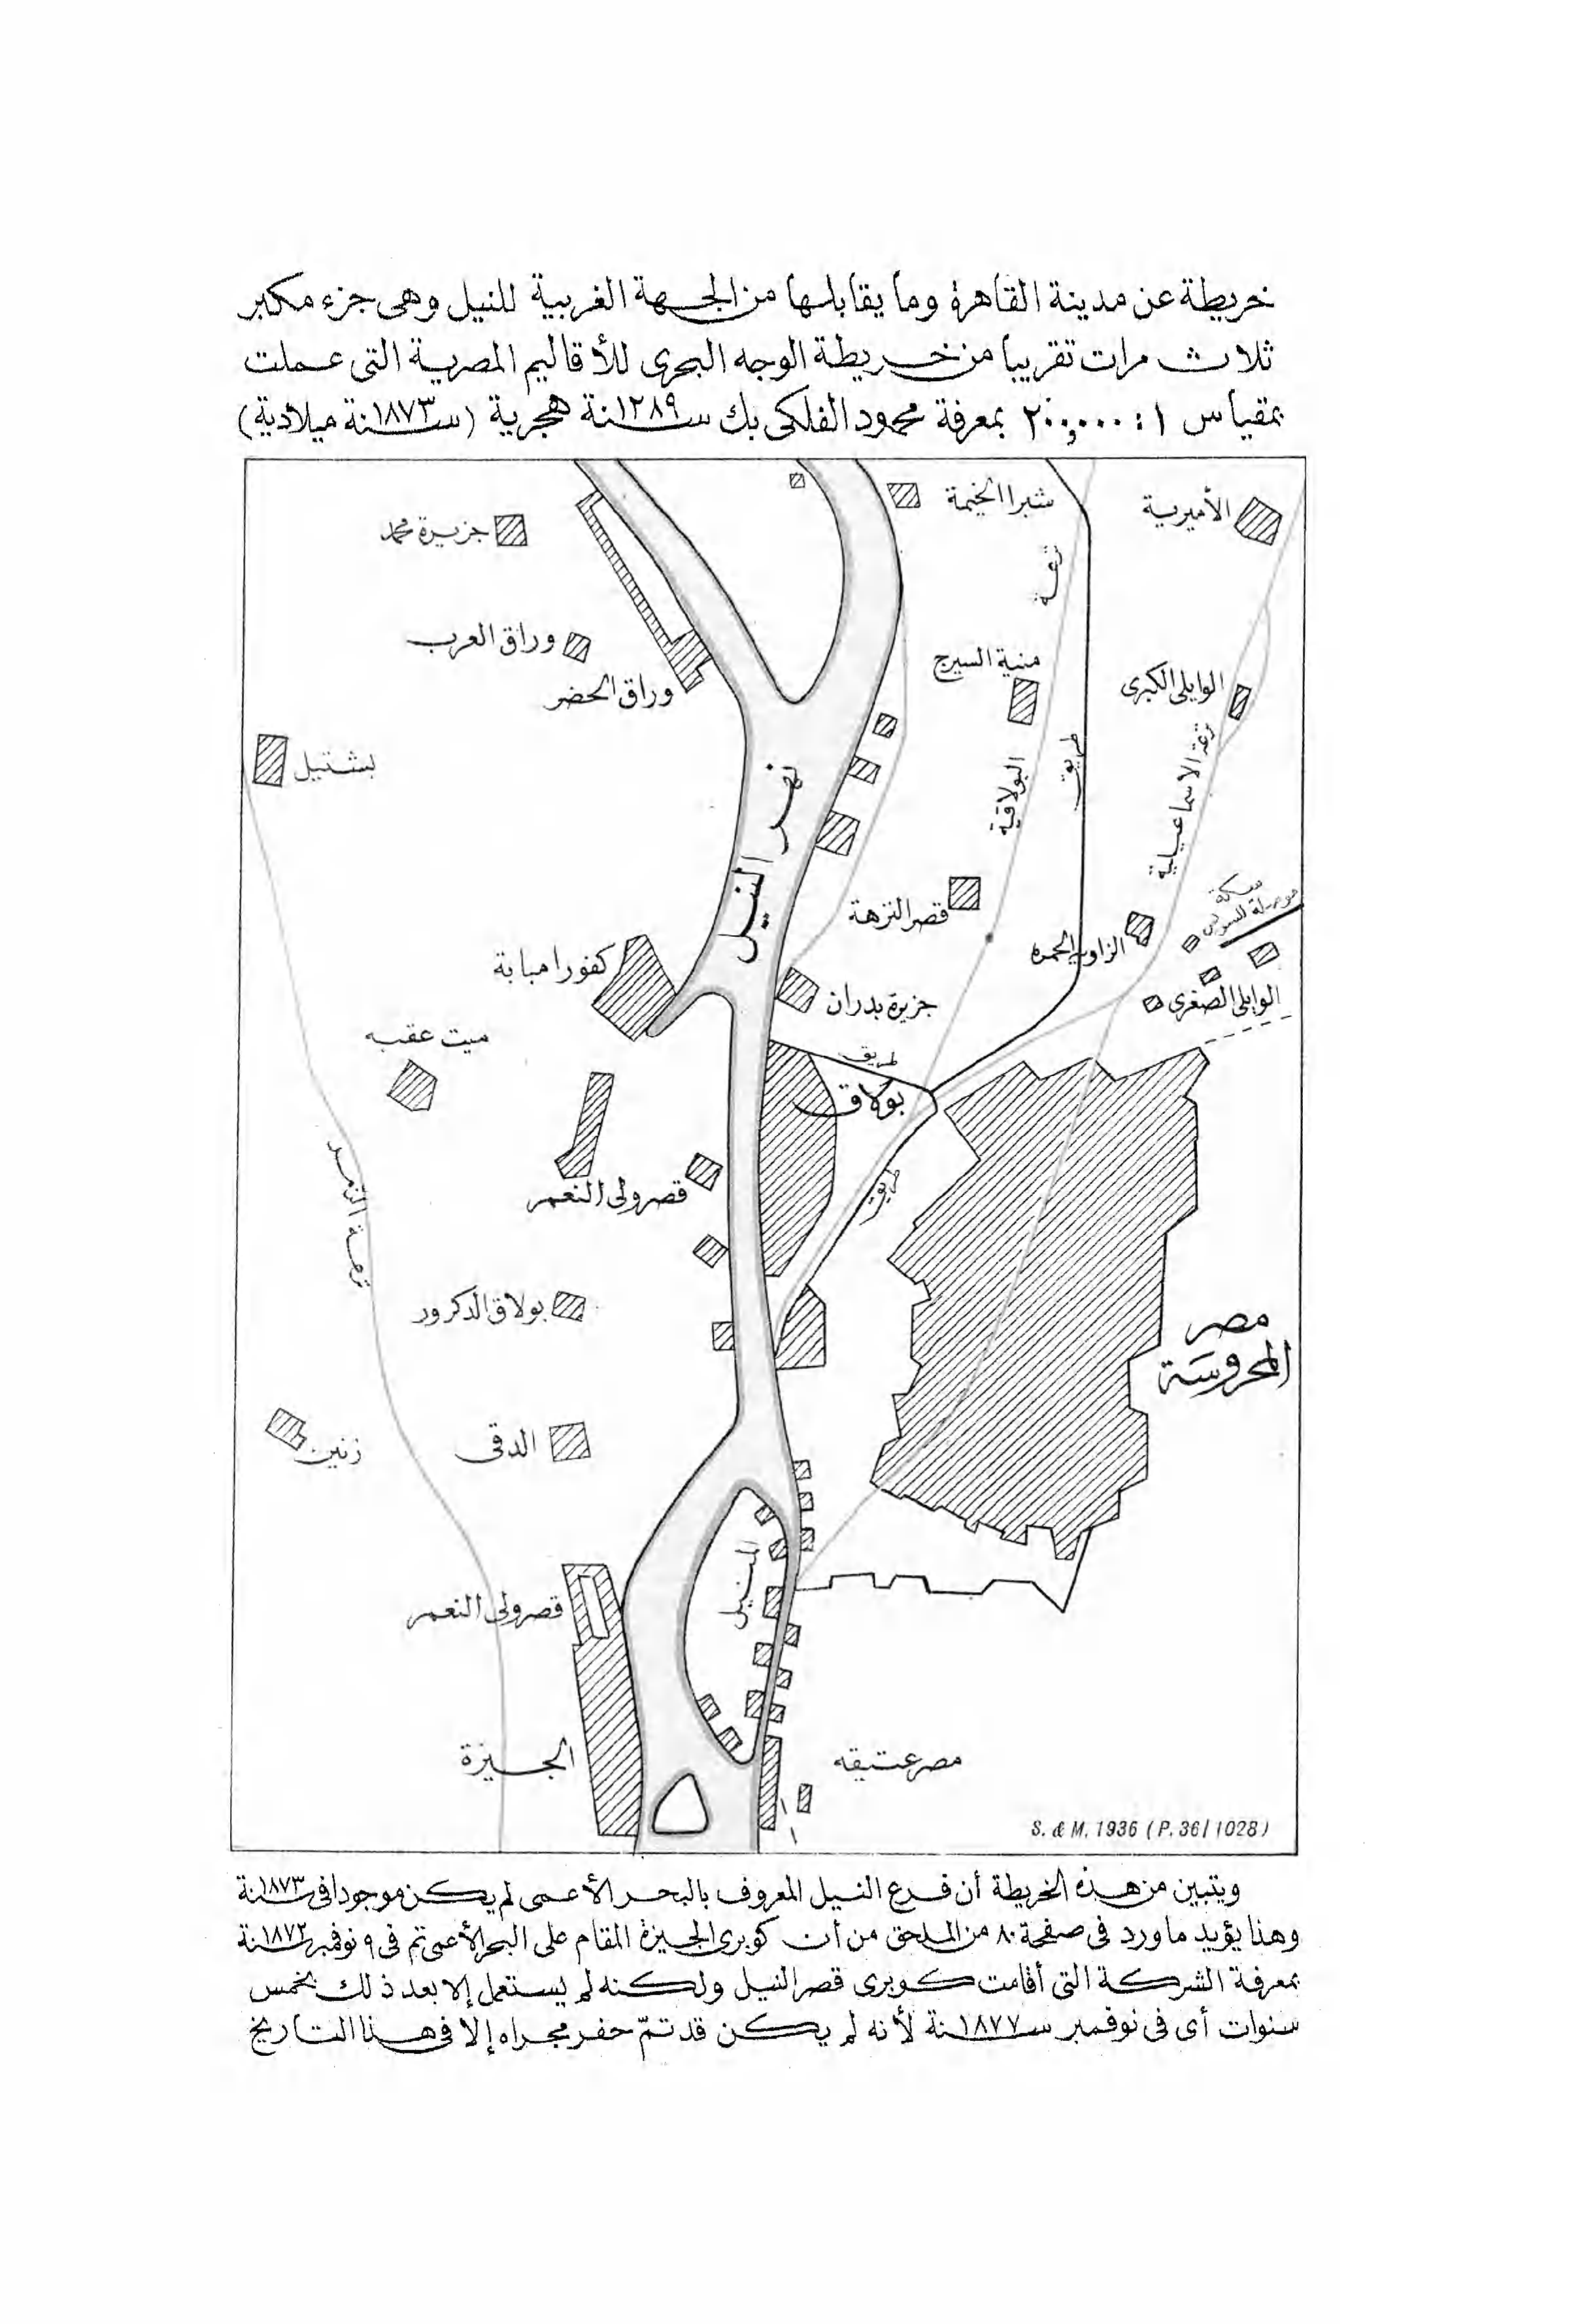 خريطة عن مدينة القاهرة وما يقابلها من الجهة الغربية للنيل وهى جزء مكبر
ثلاث مرات تقريبا من خريطة الوجه البحرى للأقاليم المصرية التى عملت
بمقياس ١ : ٢٠٠,٠٠٠ بمعرفة محمود الفلكى بك سنة ١٢٨٩ هجرية (سنة ١٨٧٣ ميلادية)
شبرا الخيمة
الأميرية
جزيرة محمد
ترعة
وراق العرب
منية السيرج
وراق الحضر
الوايلى الكبرى
بشتيل
نهر النيل
البولاقية
طريق
ترعة الاسماعيلية
سكة
موصلة للسويس
قصر النزهة
الزاوية الحمره
كفور امبابة
جزيرة بدران
الوايلى الصغرى
ميت عقبه
طريق
بولاق
طريق
قصر ولى النعم
ترعة
بولاق الدكرور
مصر
المحروسة
زنين
الدقى
المنيل
قصر ولى النعم
الجيزة
مصر عتيقه
S. & M. 1936 (P. 36/1028)
ويتبين من هذه الخريطة أن فرع النيل المعروف بالبحر الأعمى لم يكن موجودا فى سنة ١٨٧٣
وهذا يؤيد ما ورد فى صفحة ٨٠ من الملحق من أن كوبرى الجيزة المقام على البحر الأعمى تم فى ٩ نوفمبر سنة ١٨٧٢
بمعرفة الشركة التى أقامت كوبرى قصر النيل ولكنه لم يستعمل إلا بعد ذلك بخمس
سنوات أى فى نوفمبر سنة ١٨٧٧ لأنه لم يكن قد تمّ حفر مجراه إلا فى هذا التاريخ